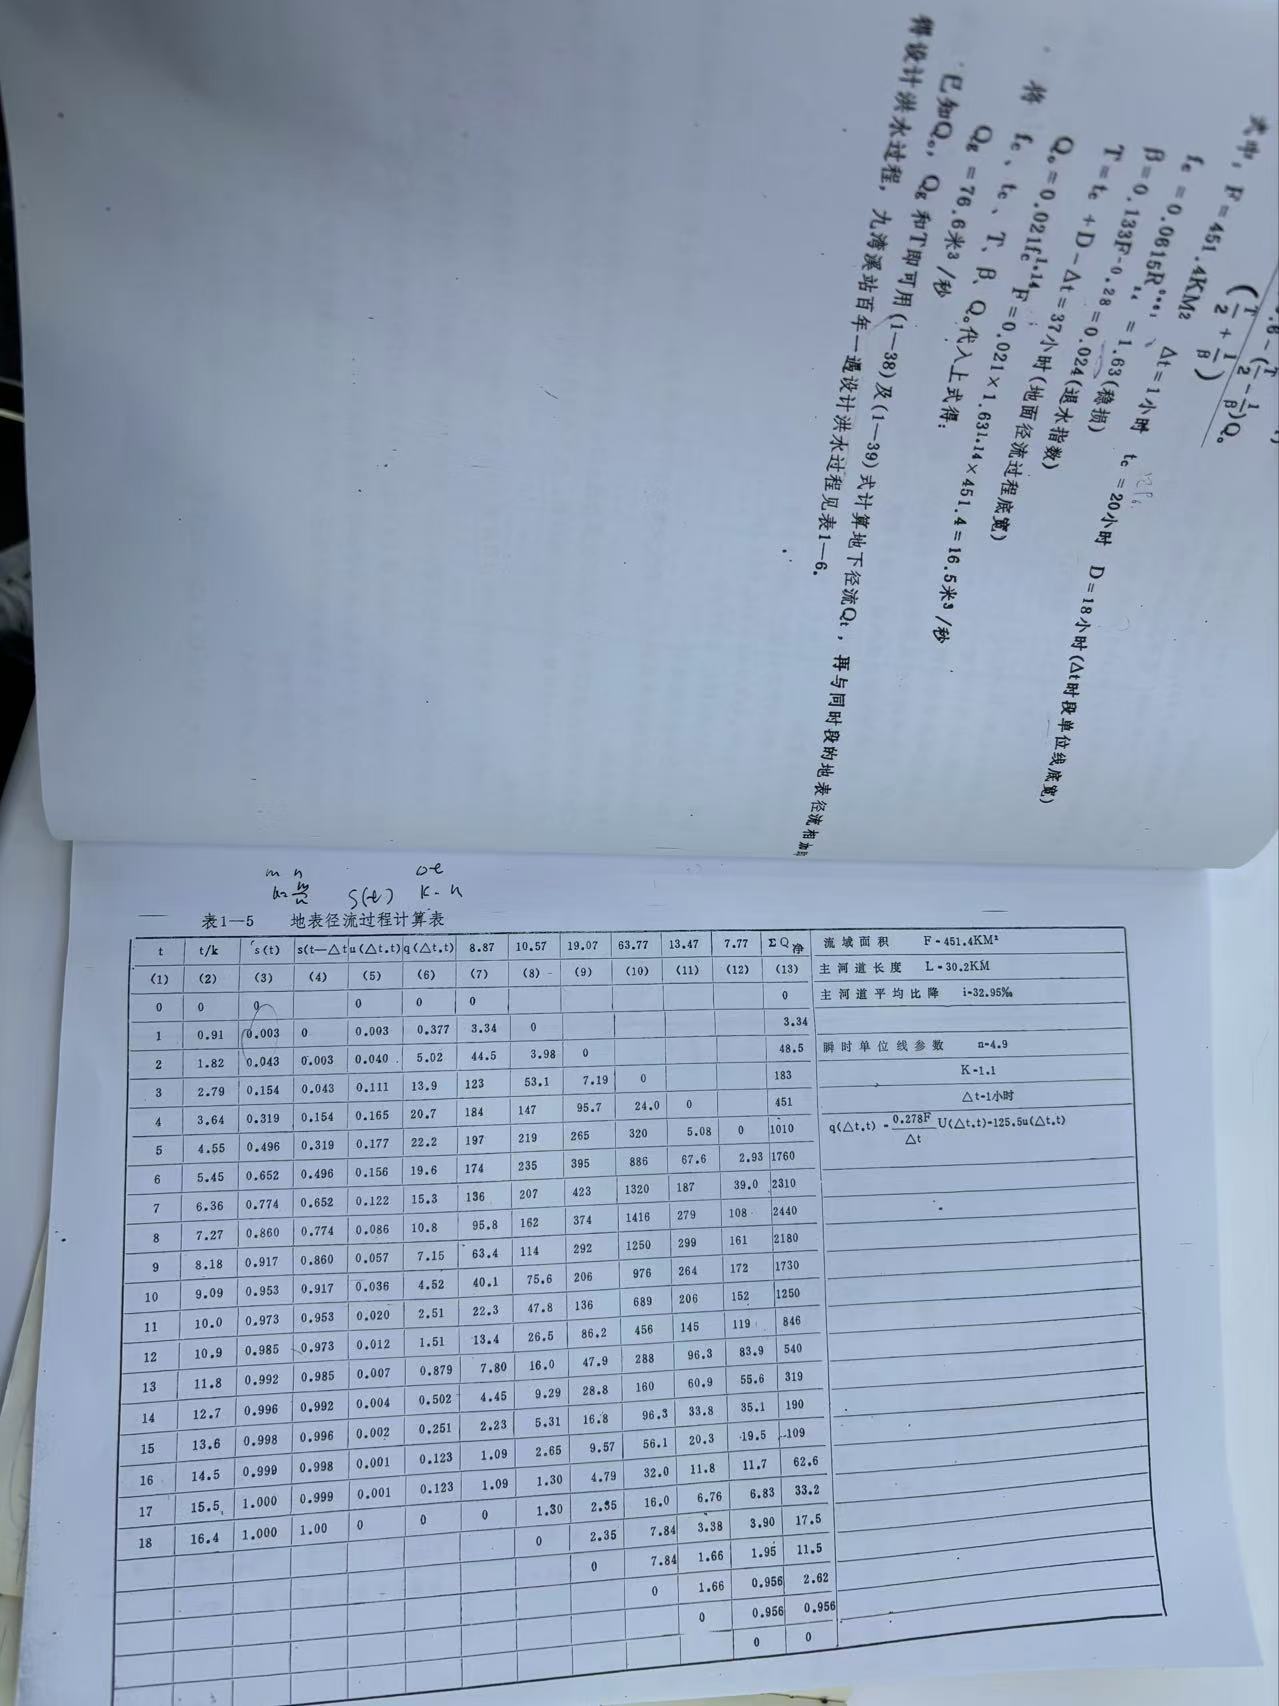 式中，F=451.4KM²
Δt=1小时 tc=20小时 D=18小时(Δt时段单位线底宽)
β=0.133F-0.28=0.024(退水指数)
T=tc+D-Δt=37小时(地面径流过程底宽)
将fc、tc、T、β、Q。代入上式得：
Qg=76.6米3/秒
已知Q。，Qg和T即可用(1—38)及(1—39)式计算地下径流Qt，再与同时段的地表径流相加
得设计洪水过程，九湾溪站百年一遇设计洪水过程见表1—6。
m n
S(t) K-n
表1—5 地表径流过程计算表
t t/k s(t) s(t—Δt u(Δt.t) q(Δt.t) 8.87 10.57 19.07 63.77 13.47 7.77 ΣQ净 流域面积 F-451.4KM²
(1) (2) (3) (4) (5) (6) (7) (8) (9) (10) (11) (12) (13) 主河道长度 L-30.2KM
0 0 0 0 0 0 0 主河道平均比降 i-32.95‰
1 0.91 0.003 0 0.003 0.377 3.34 0 3.34
2 1.82 0.043 0.003 0.040 5.02 44.5 3.98 0 48.5 瞬时单位线参数 n-4.9
3 2.79 0.154 0.043 0.111 13.9 123 53.1 7.19 0 183 K-1.1
4 3.64 0.319 0.154 0.165 20.7 184 147 95.7 24.0 0 451 Δt-1小时
5 4.55 0.496 0.319 0.177 22.2 197 219 265 320 5.08 0 1010 q(Δt.t) - 0.278F/Δt U(Δt.t)-125.5u(Δt.t)
6 5.45 0.652 0.496 0.156 19.6 174 235 395 886 67.6 2.93 1760
7 6.36 0.774 0.652 0.122 15.3 136 207 423 1320 187 39.0 2310
8 7.27 0.860 0.774 0.086 10.8 95.8 162 374 1416 279 108 2440
9 8.18 0.917 0.860 0.057 7.15 63.4 114 292 1250 299 161 2180
10 9.09 0.953 0.917 0.036 4.52 40.1 75.6 206 976 264 172 1730
11 10.0 0.973 0.953 0.020 2.51 22.3 47.8 136 689 206 152 1250
12 10.9 0.985 0.973 0.012 1.51 13.4 26.5 86.2 456 145 119 846
13 11.8 0.992 0.985 0.007 0.879 7.80 16.0 47.9 288 96.3 83.9 540
14 12.7 0.996 0.992 0.004 0.502 4.45 9.29 28.8 160 60.9 55.6 319
15 13.6 0.998 0.996 0.002 0.251 2.23 5.31 16.8 96.3 33.8 35.1 190
16 14.5 0.999 0.998 0.001 0.123 1.09 2.65 9.57 56.1 20.3 19.5 109
17 15.5 1.000 0.999 0.001 0.123 1.09 1.30 4.79 32.0 11.8 11.7 62.6
18 16.4 1.000 1.00 0 0 0 1.30 2.35 16.0 6.76 6.83 33.2
0 2.35 7.84 3.38 3.90 17.5
0 7.84 1.66 1.95 11.5
0 1.66 0.956 2.62
0 0.956 0.956
0 0